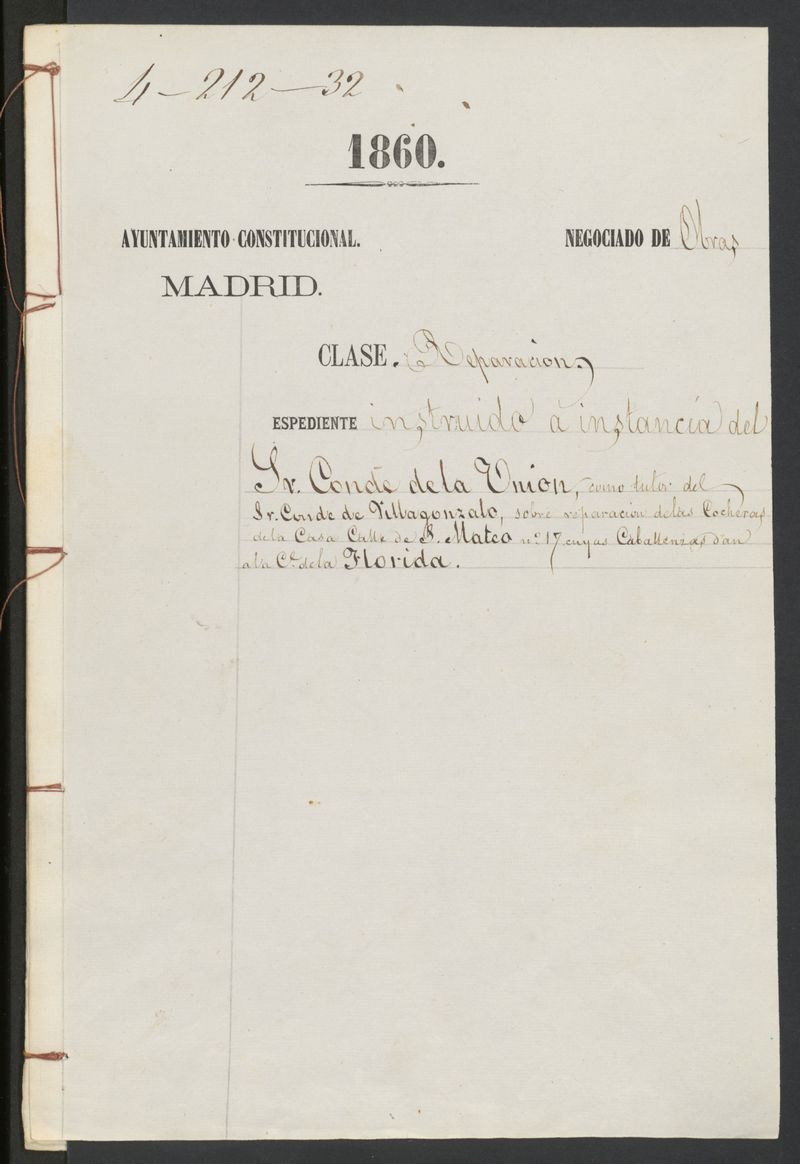 4-212-32
1860.
AYUNTAMIENTO CONSTITUCIONAL.
NEGOCIADO DE Obras
MADRID.
CLASE. Reparacion
ESPEDIENTE instruido á instancia del
Sr. Conde de la Union, como tutor del
Sr. Conde de Villagonzalo, sobre reparacion de las Cocheras
de la Casa Calle de S. Mateo nº 17 cuyas Caballerizas dan
a la C.e de la Florida.